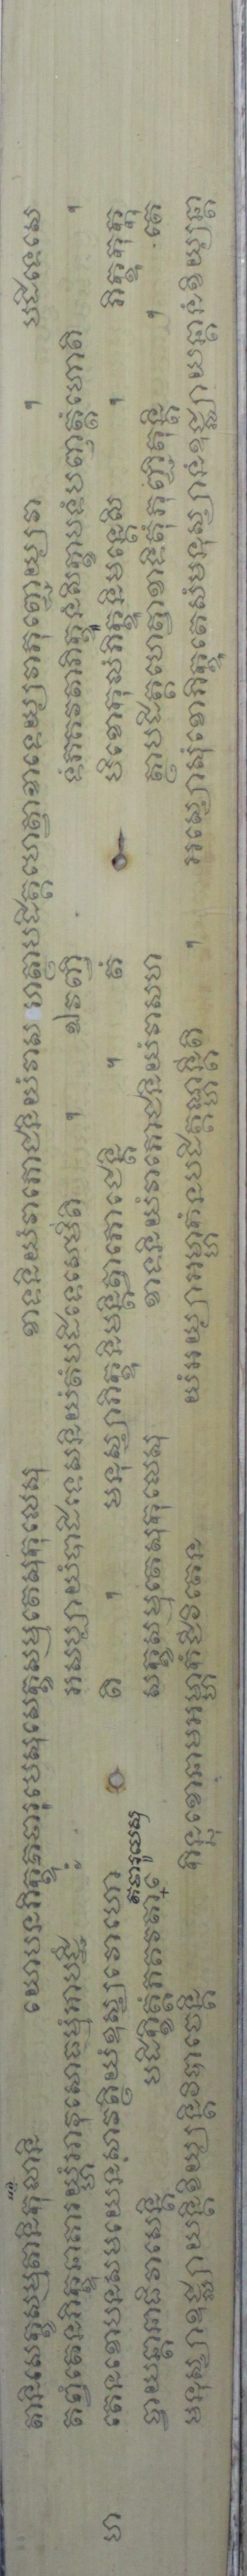 តានិសេក្ខសម្មតានិកុលានិ យោបនភិក្ខុតថារូបេសុសេក្ខសម្មតេសុកុលេសុ ខាទនិយំវាភោជនិយំវាសហត្ថាបដិគ្គហេត្វាខាទេយ្យវាភុញ្ជេយ្យវា ។ បដិទេសេ
តព្វំតេនភិក្ខុនាគារយ្ហំអាវុសោធម្មំអាបជ្ជឹ ៖ អសប្បាយំបាដិទេសនិយំតំបដិទេសេមីតិ ។ ឯវញ្ចិ ទំភគវតាភិក្ខូនំសិក្ខាបទំបញ្ញត្តំហោតិ ។
ហ តេនខោបនសមយេនសាវត្ថិយំឧស្សវោហោ តិ ។ មនុស្សាភិក្ខូនិមន្តេត្វាភោជេន្តិ ។ តំ បិខោកុលំភិក្ខូនិមន្តេសិ ។ ភិក្ខូកុក្កុ
ច្ចាយន្តានាធិវាសេន្តិ បដិក្ខិត្តំភគវតា តថារូបេសុ សេក្ខសម្មតេសុកុលេសុ ខាទនិយំវាភោជនិយំវាសហ ត្ថាបដិគ្គហេត្វាខាទិតុំភុញ្ជិតុន្តិ ។ តេ
មនុស្សាឧជ្ឈាយន្តិខិយ្យន្តិវិបាចេន្តិ កិន្នុខោនាមអម្ហាកំជីវិតេន យំអយ្យាអម្ហាកំនបដិគ្គណ្ហន្តីតិ ។ អស្សោសុំខោភិក្ខូតេសំមនុស្សានំឧជ្ឈាយន្តានំខិយ្យន្តា